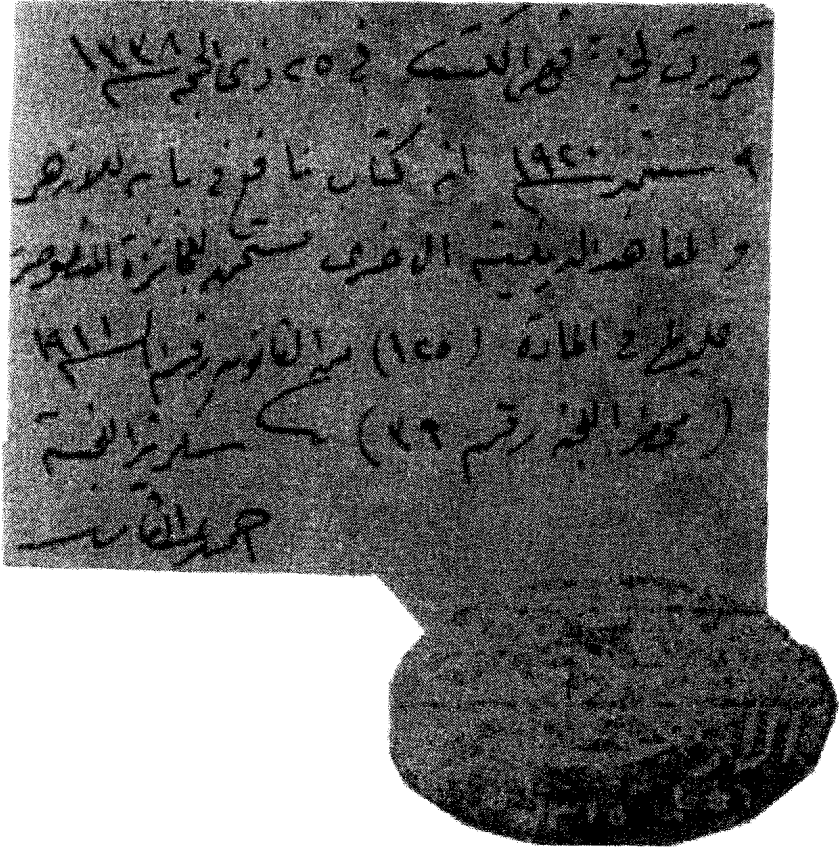 قررت لجنة فحص الكتب في ٢٥ ذى الحجة سنة ١٣٣٨
٩ سبتمبر سنة ١٩٢٠ أنه كتاب نافع في بابه للأزهر
والمعاهد الدينية الأخرى مستحق للجائزة المنصوص
عليها في المادة (١٢٥) من القانون رقم ١ سنة ١٩١١
(محضر اللجنة رقم ٣٩) سكرتير اللجنة